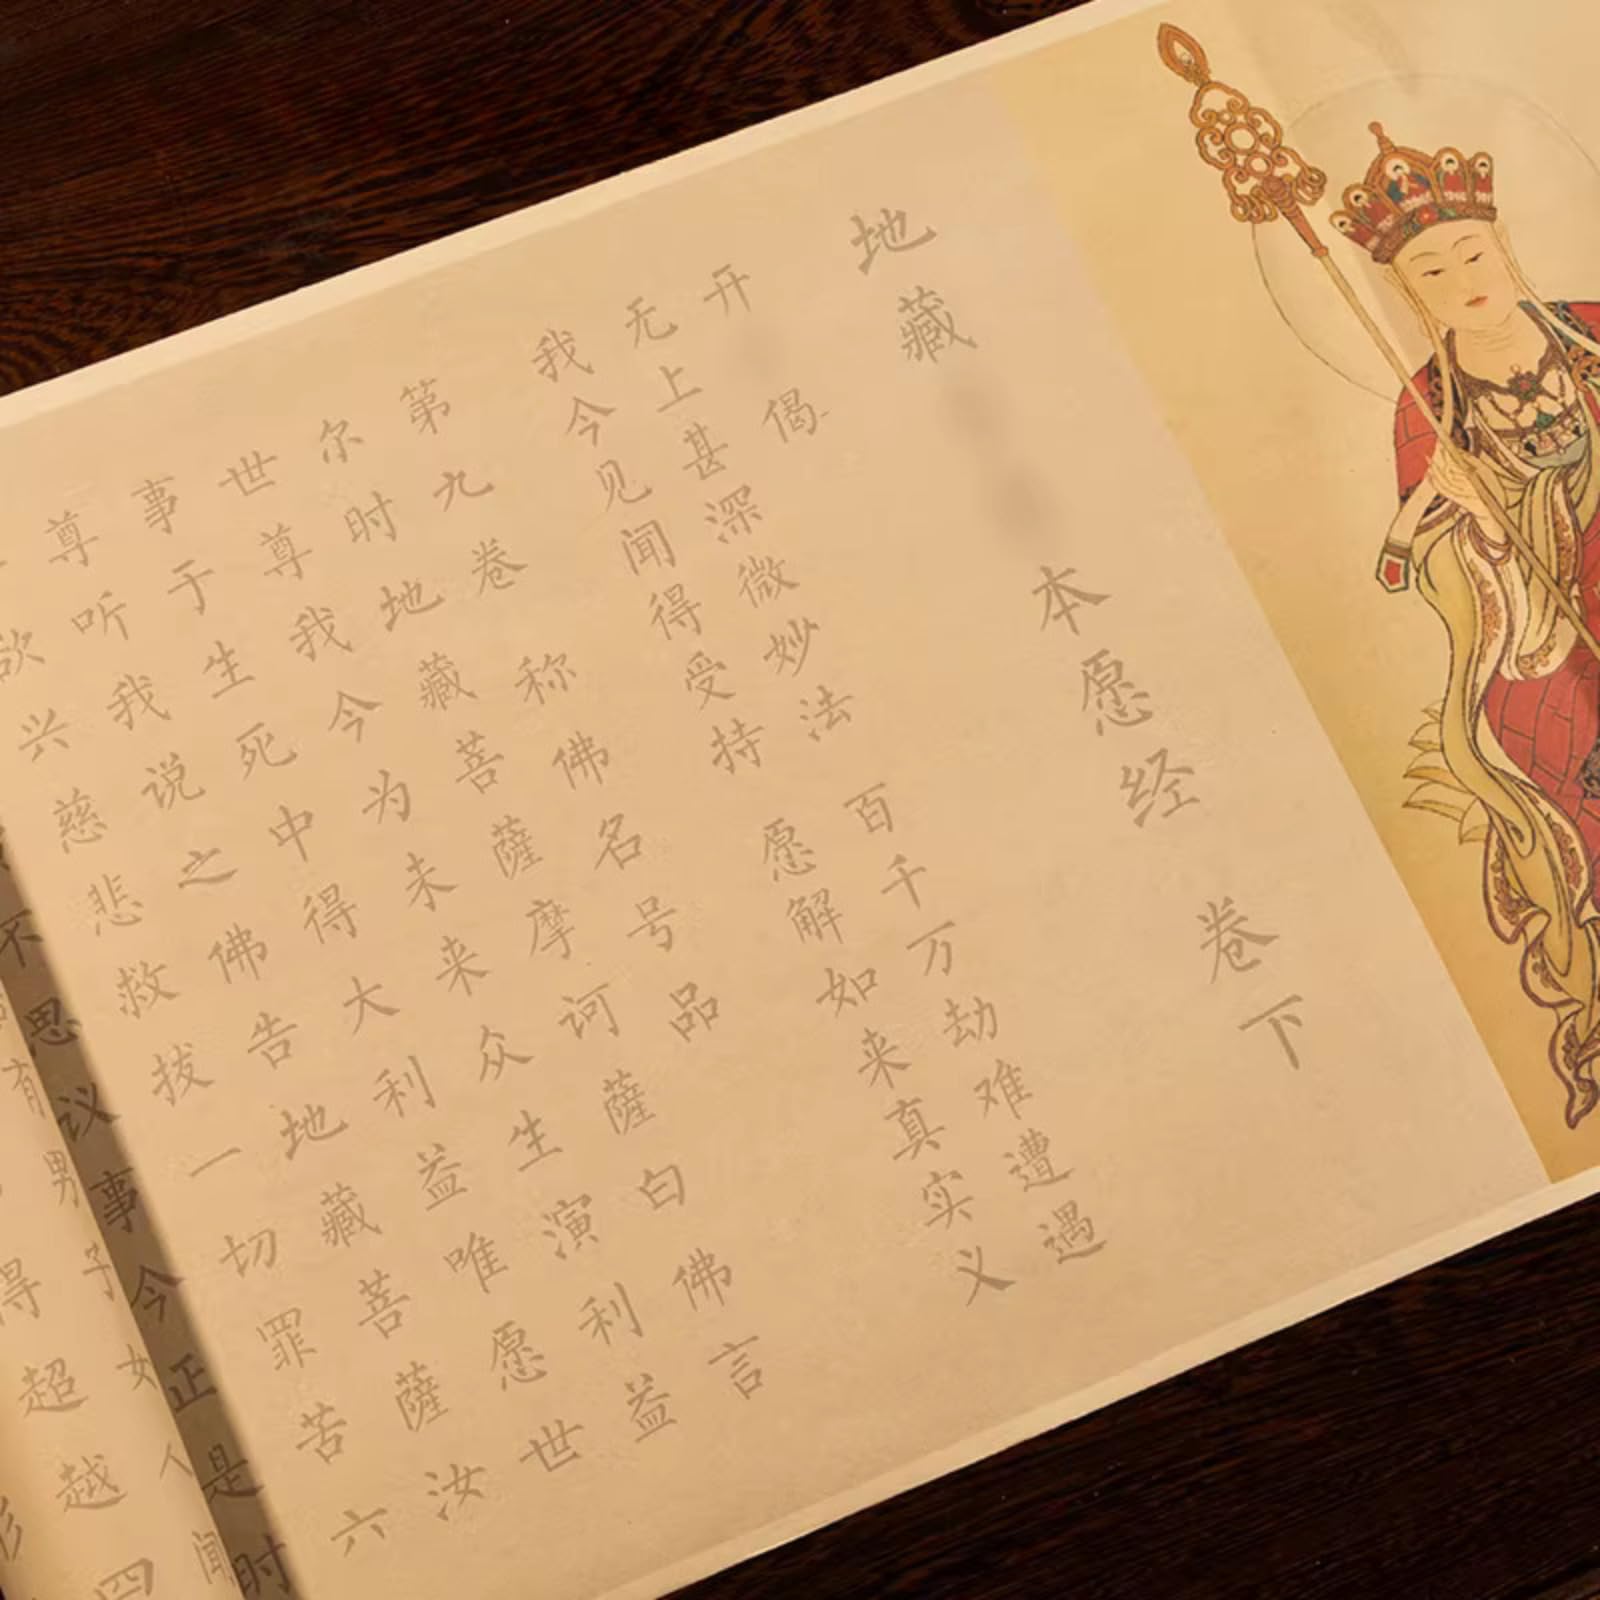 地藏 本愿经 卷下
开 偈
无上甚深微妙法 百千万劫难遭遇
我今见闻得受持 愿解如来真实义
第九卷 称佛名号品
尔时地藏菩薩摩诃薩白佛言
世尊我今为未来众生演利益
事于生死中得大利益唯愿世
尊听我说之佛告地藏菩薩汝
欲兴慈悲救拔一切罪苦六
不思议事今正是时
有男子女人闻
得超越四